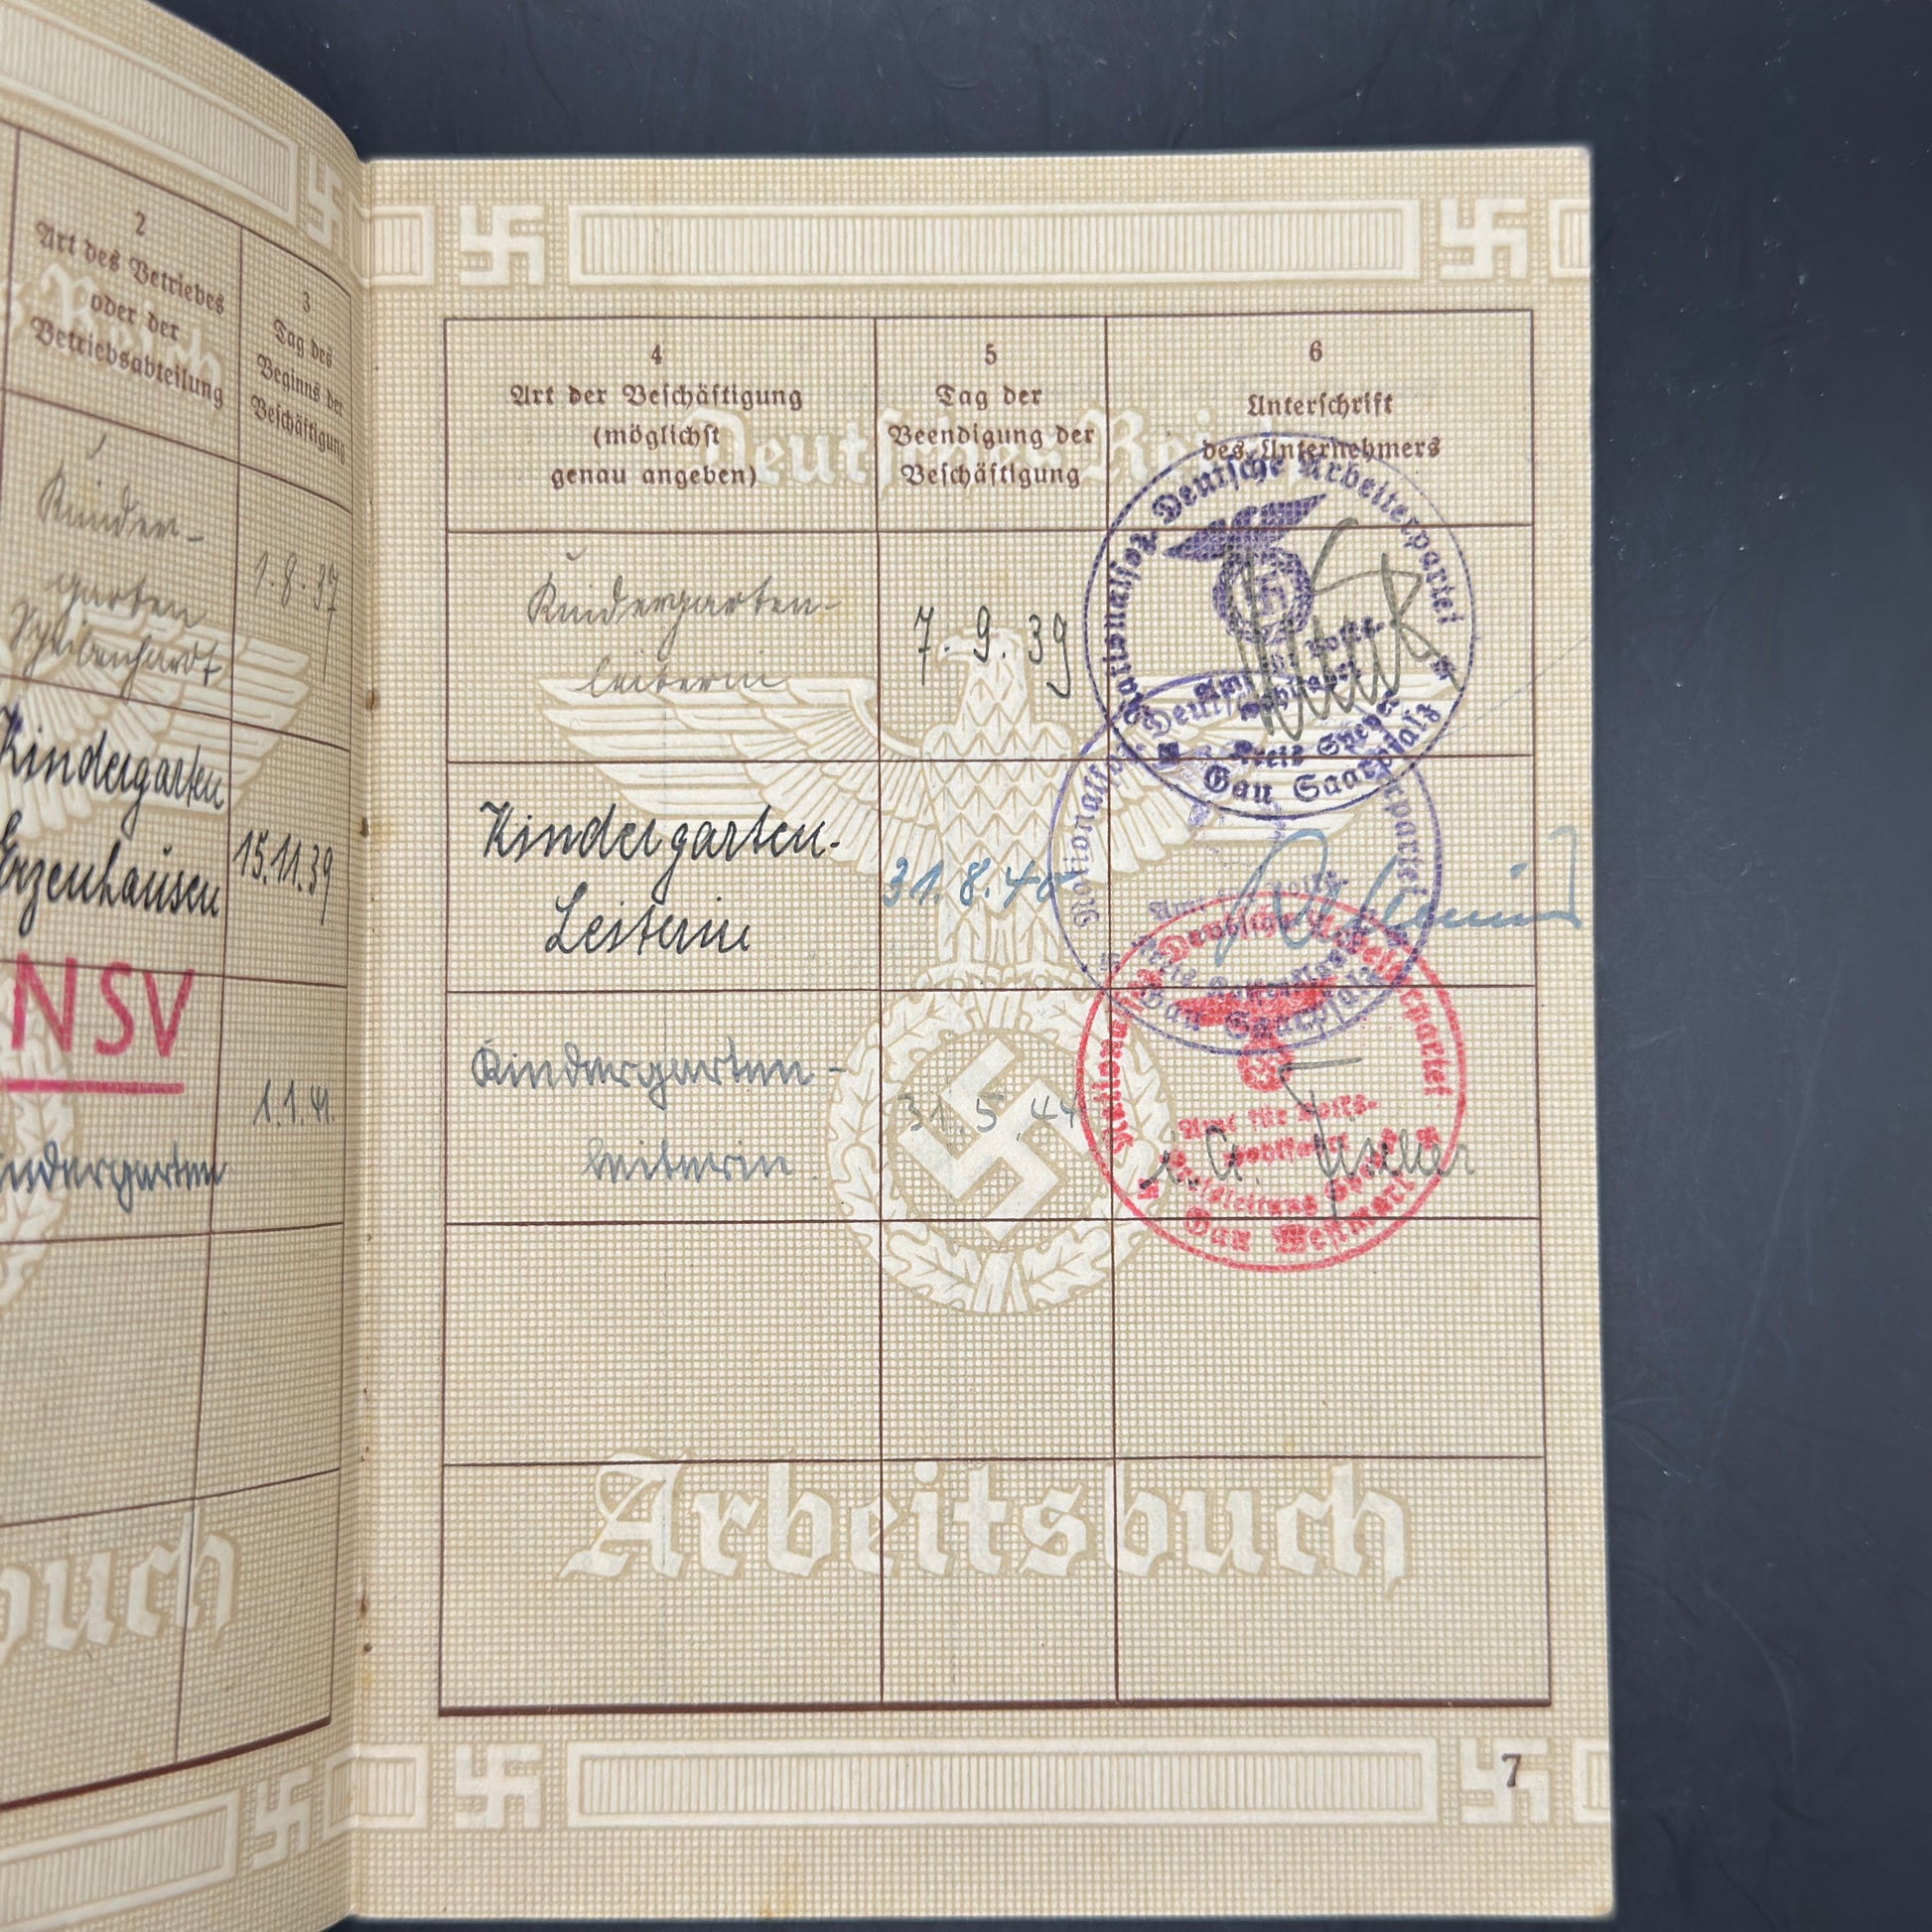 2
Art des Betriebes
oder der
Betriebsabteilung
3
Tag des
Beginns der
Beschäftigung
Kinder-
garten
1.8.37
Kindergarten
Erzenhausen
15.11.39
NSV
1.1.41.
Kindergarten
4
Art der Beschäftigung
(möglichst
genau angeben)
5
Tag der
Beendigung der
Beschäftigung
6
Unterschrift
des Unternehmers
Deutsches Reich
Kindergarten-
leiterin
7.9.39
Nationalsoz. Deutsche Arbeiterpartei
Amt für Volks-
Kreis Speyer
Gau Saarpfalz
Kindergarten-
Leiterin
31.8.40
Nationalsoz. Deutsche Arbeiterpartei
Gau Saarpfalz
Kindergarten-
leiterin
31.5.44
Deutsche Arbeiterpartei
Amt für Volks-
wohlfahrt
Kreisleitung
Gau Westmark
i. A.
Arbeitsbuch
7